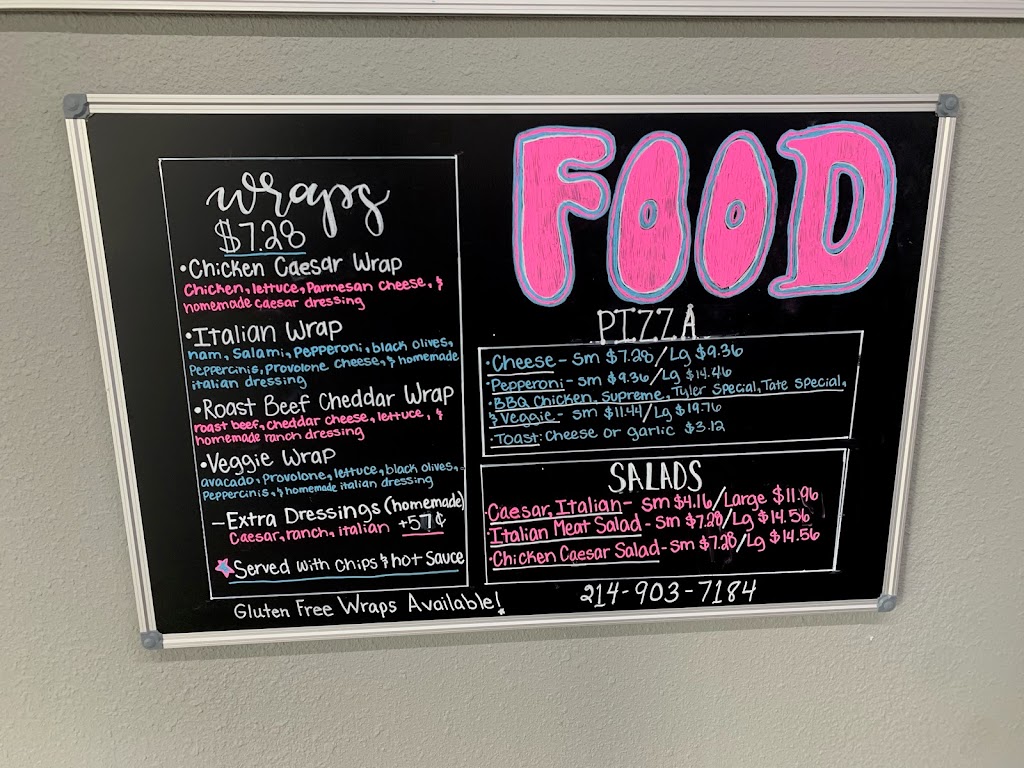 FOOD
wraps
$7.28
•Chicken Caesar Wrap
Chicken, lettuce, Parmesan cheese, &
homemade caesar dressing
•Italian Wrap
ham, Salami, Pepperoni, black olives,
Peppercinis, Provolone cheese, & homemade
italian dressing
•Roast Beef Cheddar Wrap
roast beef, cheddar cheese, lettuce, &
homemade ranch dressing
•Veggie Wrap
avocado, Provolone, lettuce, black olives,
Peppercinis, & homemade italian dressing
-Extra Dressings (homemade)
Caesar, ranch, italian +57¢
Served with chips & hot sauce
Gluten Free Wraps Available!
PIZZA
•Cheese - sm $7.28/Lg $9.36
•Pepperoni - sm $9.36/Lg $14.46
•BBQ Chicken, Supreme, Tyler Special, Tate Special,
& Veggie - sm $11.44/Lg $19.76
•Toast: Cheese or garlic $3.12
SALADS
•Caesar, Italian - sm $4.16/Large $11.96
•Italian Meat Salad - sm $7.28/Lg $14.56
•Chicken Caesar Salad - sm $7.28/Lg $14.56
214-903-7184